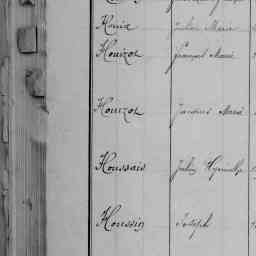 Houix Julien Marie
Houizot François Marie
Houizot Jacques Marie
Houssais Julien Hyacinthe
Houssin Joseph